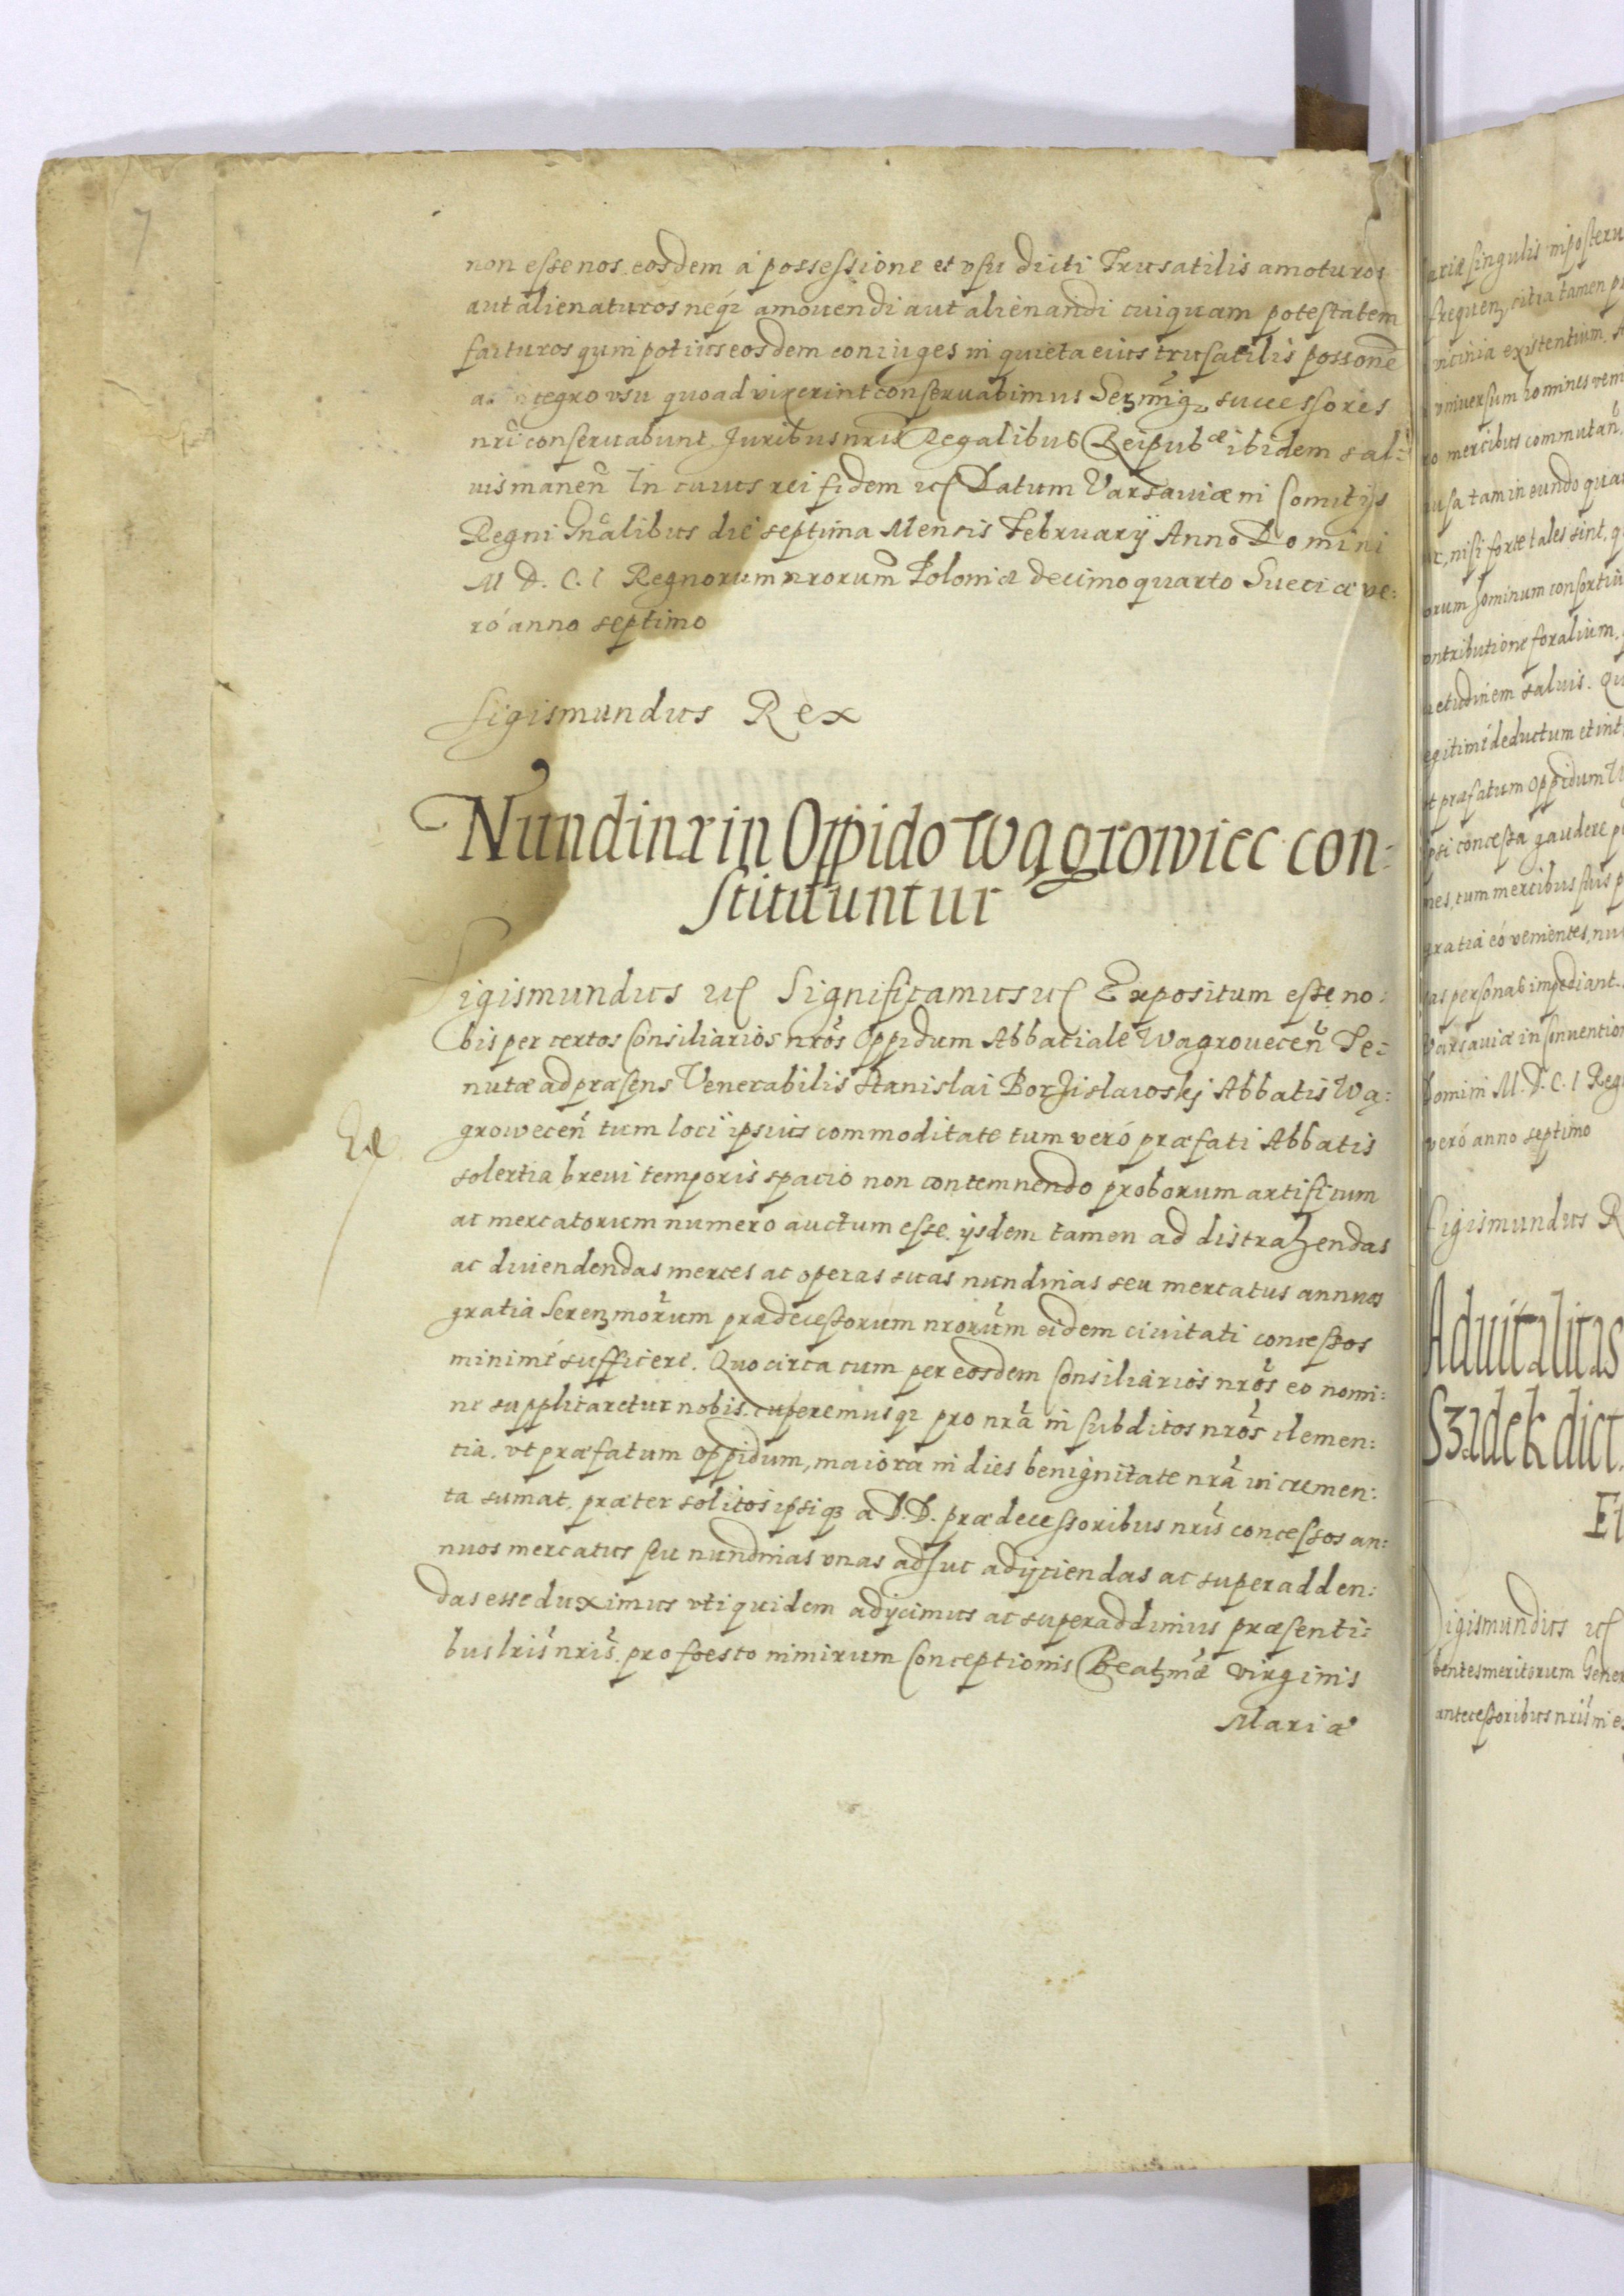 7
non esse nos eosdem à possessione et vsu dicti Trusatilis amoturos
aut alienaturos neq₃ amouendi aut alienandi cuiquam potestatem
facturos quin potius eosdem coniuges in quieta eius trusatilis possone
ac integro vsu quoad vixerint conseruabimus Serzmiq₃ successores
nri conseruabunt Juribus nris Regalibus Reipubcæ ibidem sal:
uis manen In cuius rei fidem etc Datum Varsauiæ in Comitijs
Regni Gnalibus die septima Mensis Februarij Anno Domini
M D. C. I Regnorum nrorum Poloniæ decimo quarto Sueciæ ve:
ró anno septimo
Sigismundus Rex
Nundinæ in Oppido Wągrowiec con:
stituuntur
Sigismundus etc Significamus etc Expositum esse no:
bis per certos Consiliarios nros Oppidum Abbatiale Wagrouecen Te:
nutæ ad præsens Venerabilis Stanislai Borzislawskj Abbatis Wą:
growecen tum loci ipsius commoditate tum veró præfati Abbatis
solertia breui temporis spacio non contemnendo proborum artificum
ac mercatorum numero auctum esse. ijsdem tamen ad distrahendas
ac diuendendas merces ac operas suas nundinas seu mercatus annuos
gratia Serenzmorum prædecessorum nrorum eidem ciuitati concessos
minimé sufficere. Quocirca cum per eosdem Consiliarios nros eo nomi:
ne supplicaretur nobis. cuperemusq₃ pro nra in subditos nros clemen:
tia. vt præfatum oppidum, maiora in dies benignitate nra incremen:
ta sumat. præter solitos ipsiq₃ a D.D. prædecessoribus nris concessos an:
nuos mercatus seu nundinas vnas adhuc adijciendas ac superadden:
das esse duximus vti quidem adijcimus ac superaddimus præsenti:
bus lris nris. pro foesto nimirum Conceptionis Beatzmæ virginis
Mariæ
ariæ singulis imposteru
frequen, citra tamen
vicinia existentium.
vniuersum homines
mercibus commutan.
tam in eundo
nisi forte tales sint,
hominum
contributione foralium.
saluis.
legitimé deductum et
præfatum Oppidum
concessa gaudere
cum mercibus suis
gratia eó venientes,
personas impediant.
Varsauiæ in Conuention
Domini M.D.C.I Reg
veró anno septimo
Sigismundus R
Aduitalitas
Szadek dict
Sigismundus etc
meritorum Gener
antecessoribus nris in